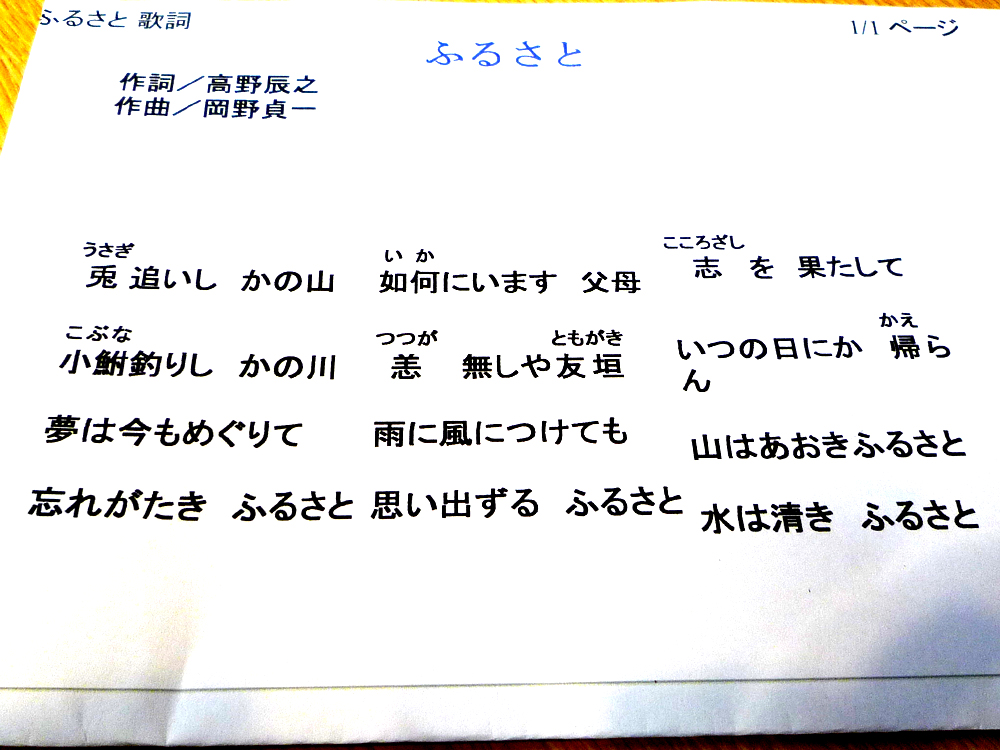 ふるさと 歌詞
1/1 ページ
ふるさと
作詞／高野辰之
作曲／岡野貞一
うさぎ
兎 追いし かの山
こぶな
小鮒釣りし かの川
夢は今もめぐりて
忘れがたき ふるさと
いか
如何にいます 父母
つつが ともがき
恙 無しや友垣
雨に風につけても
思い出ずる ふるさと
こころざし
志 を 果たして
かえ
いつの日にか 帰ら
ん
山はあおきふるさと
水は清き ふるさと